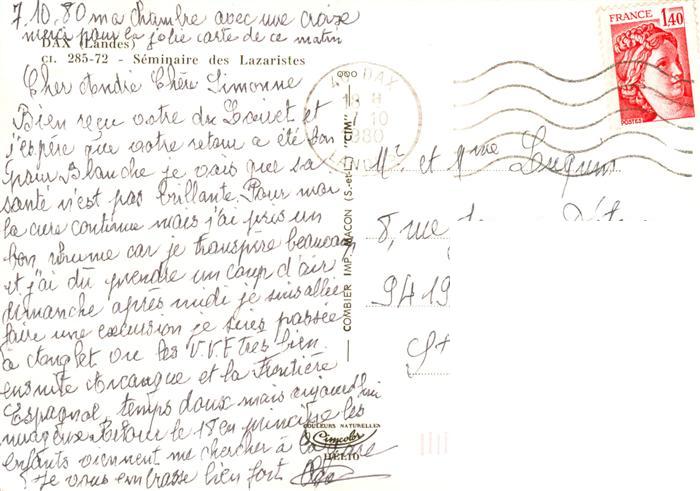 7.10.80 ma chambre avec une croix
merci pour la jolie carte de ce matin
DAX (Landes)
CI. 285-72 - Séminaire des Lazaristes
Cher André Chère Simonne
Bien reçu votre du Loiret et
j'espère que votre retour a été bon
pour Blanche je vois que sa
santé n'est pas brillante. Pour moi
la cure continue mais j'ai pris un
bon rhume car je transpire beaucoup
et j'ai dû prendre un coup d'air
dimanche après midi je suis allée
faire une excursion je suis passée
à Anglet vu les V.V.F très bien
ensuite Arcangue et la Frontière
Espagnol, temps doux mais aujourd'hui
nuageux. Retour le 18 en principe les
enfants viennent me chercher à la
Je vous embrasse bien fort
COMBIER IMP. MACON (S.-et-L.) "CIM"
COULEURS NATURELLES
Cimcolor
HÉLIO
DAX
18 H
7 10
1980
LANDES
FRANCE
1,40
POSTES
Mr et Mme
8, rue
9419
St